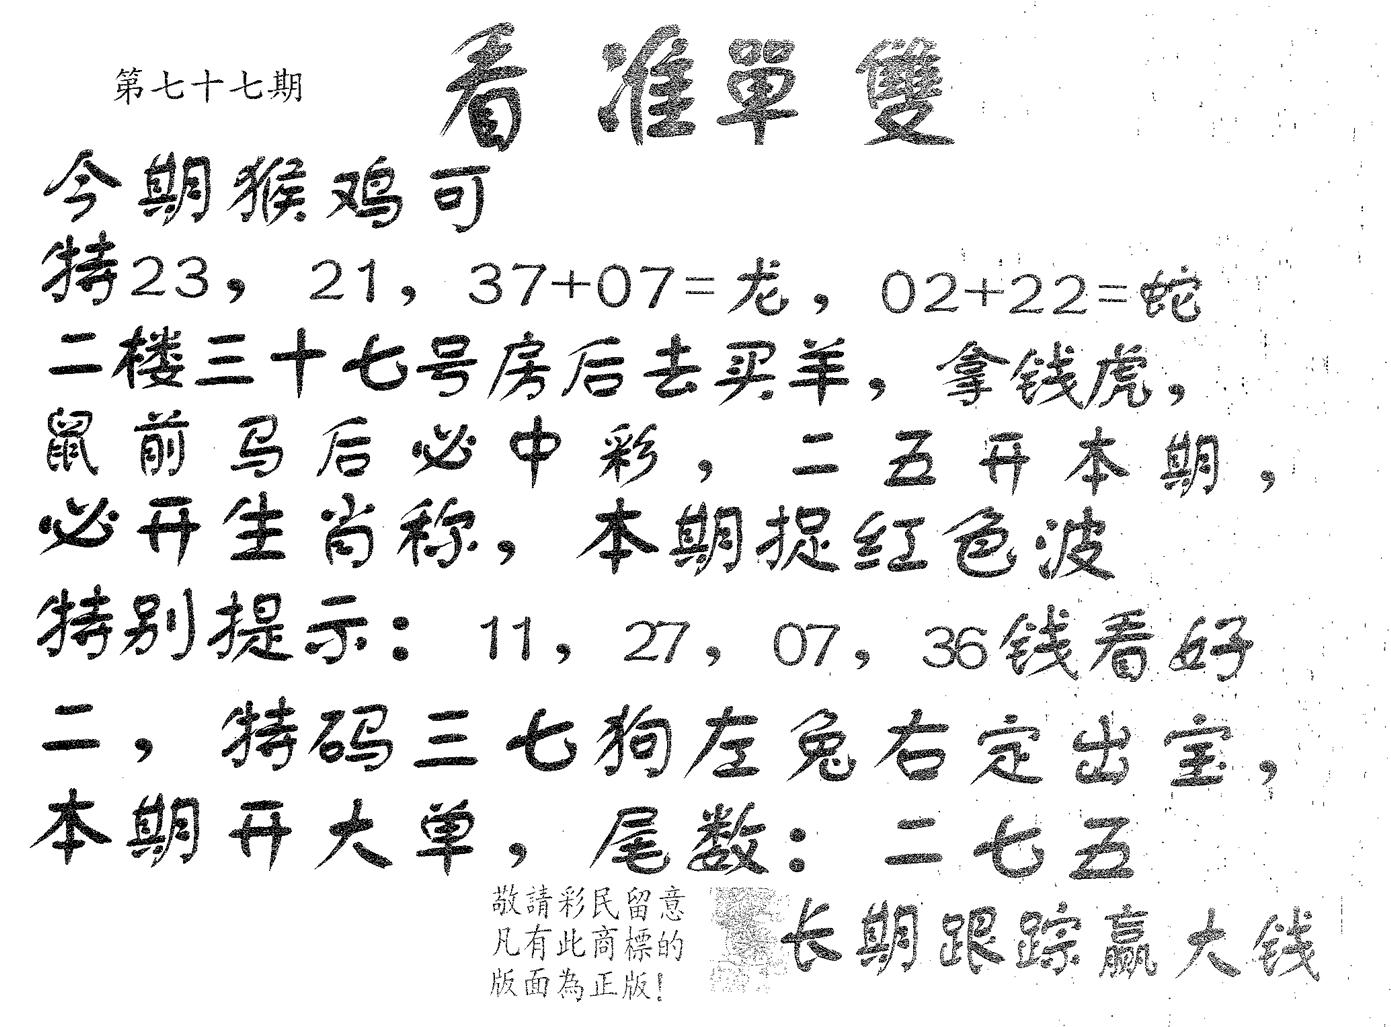 第七十七期
看准單雙
今期猴鸡可
特23，21，37+07=龙，02+22=蛇
二楼三十七号房后去买羊，拿钱虎，
鼠前马后必中彩，二五开本期，
必开生肖称，本期捉红色波
特别提示：11，27，07，36钱看好
二，特码三七狗左兔右定出宝，
本期开大单，尾数：二七五
敬請彩民留意
凡有此商標的
版面為正版！
长期跟踪赢大钱